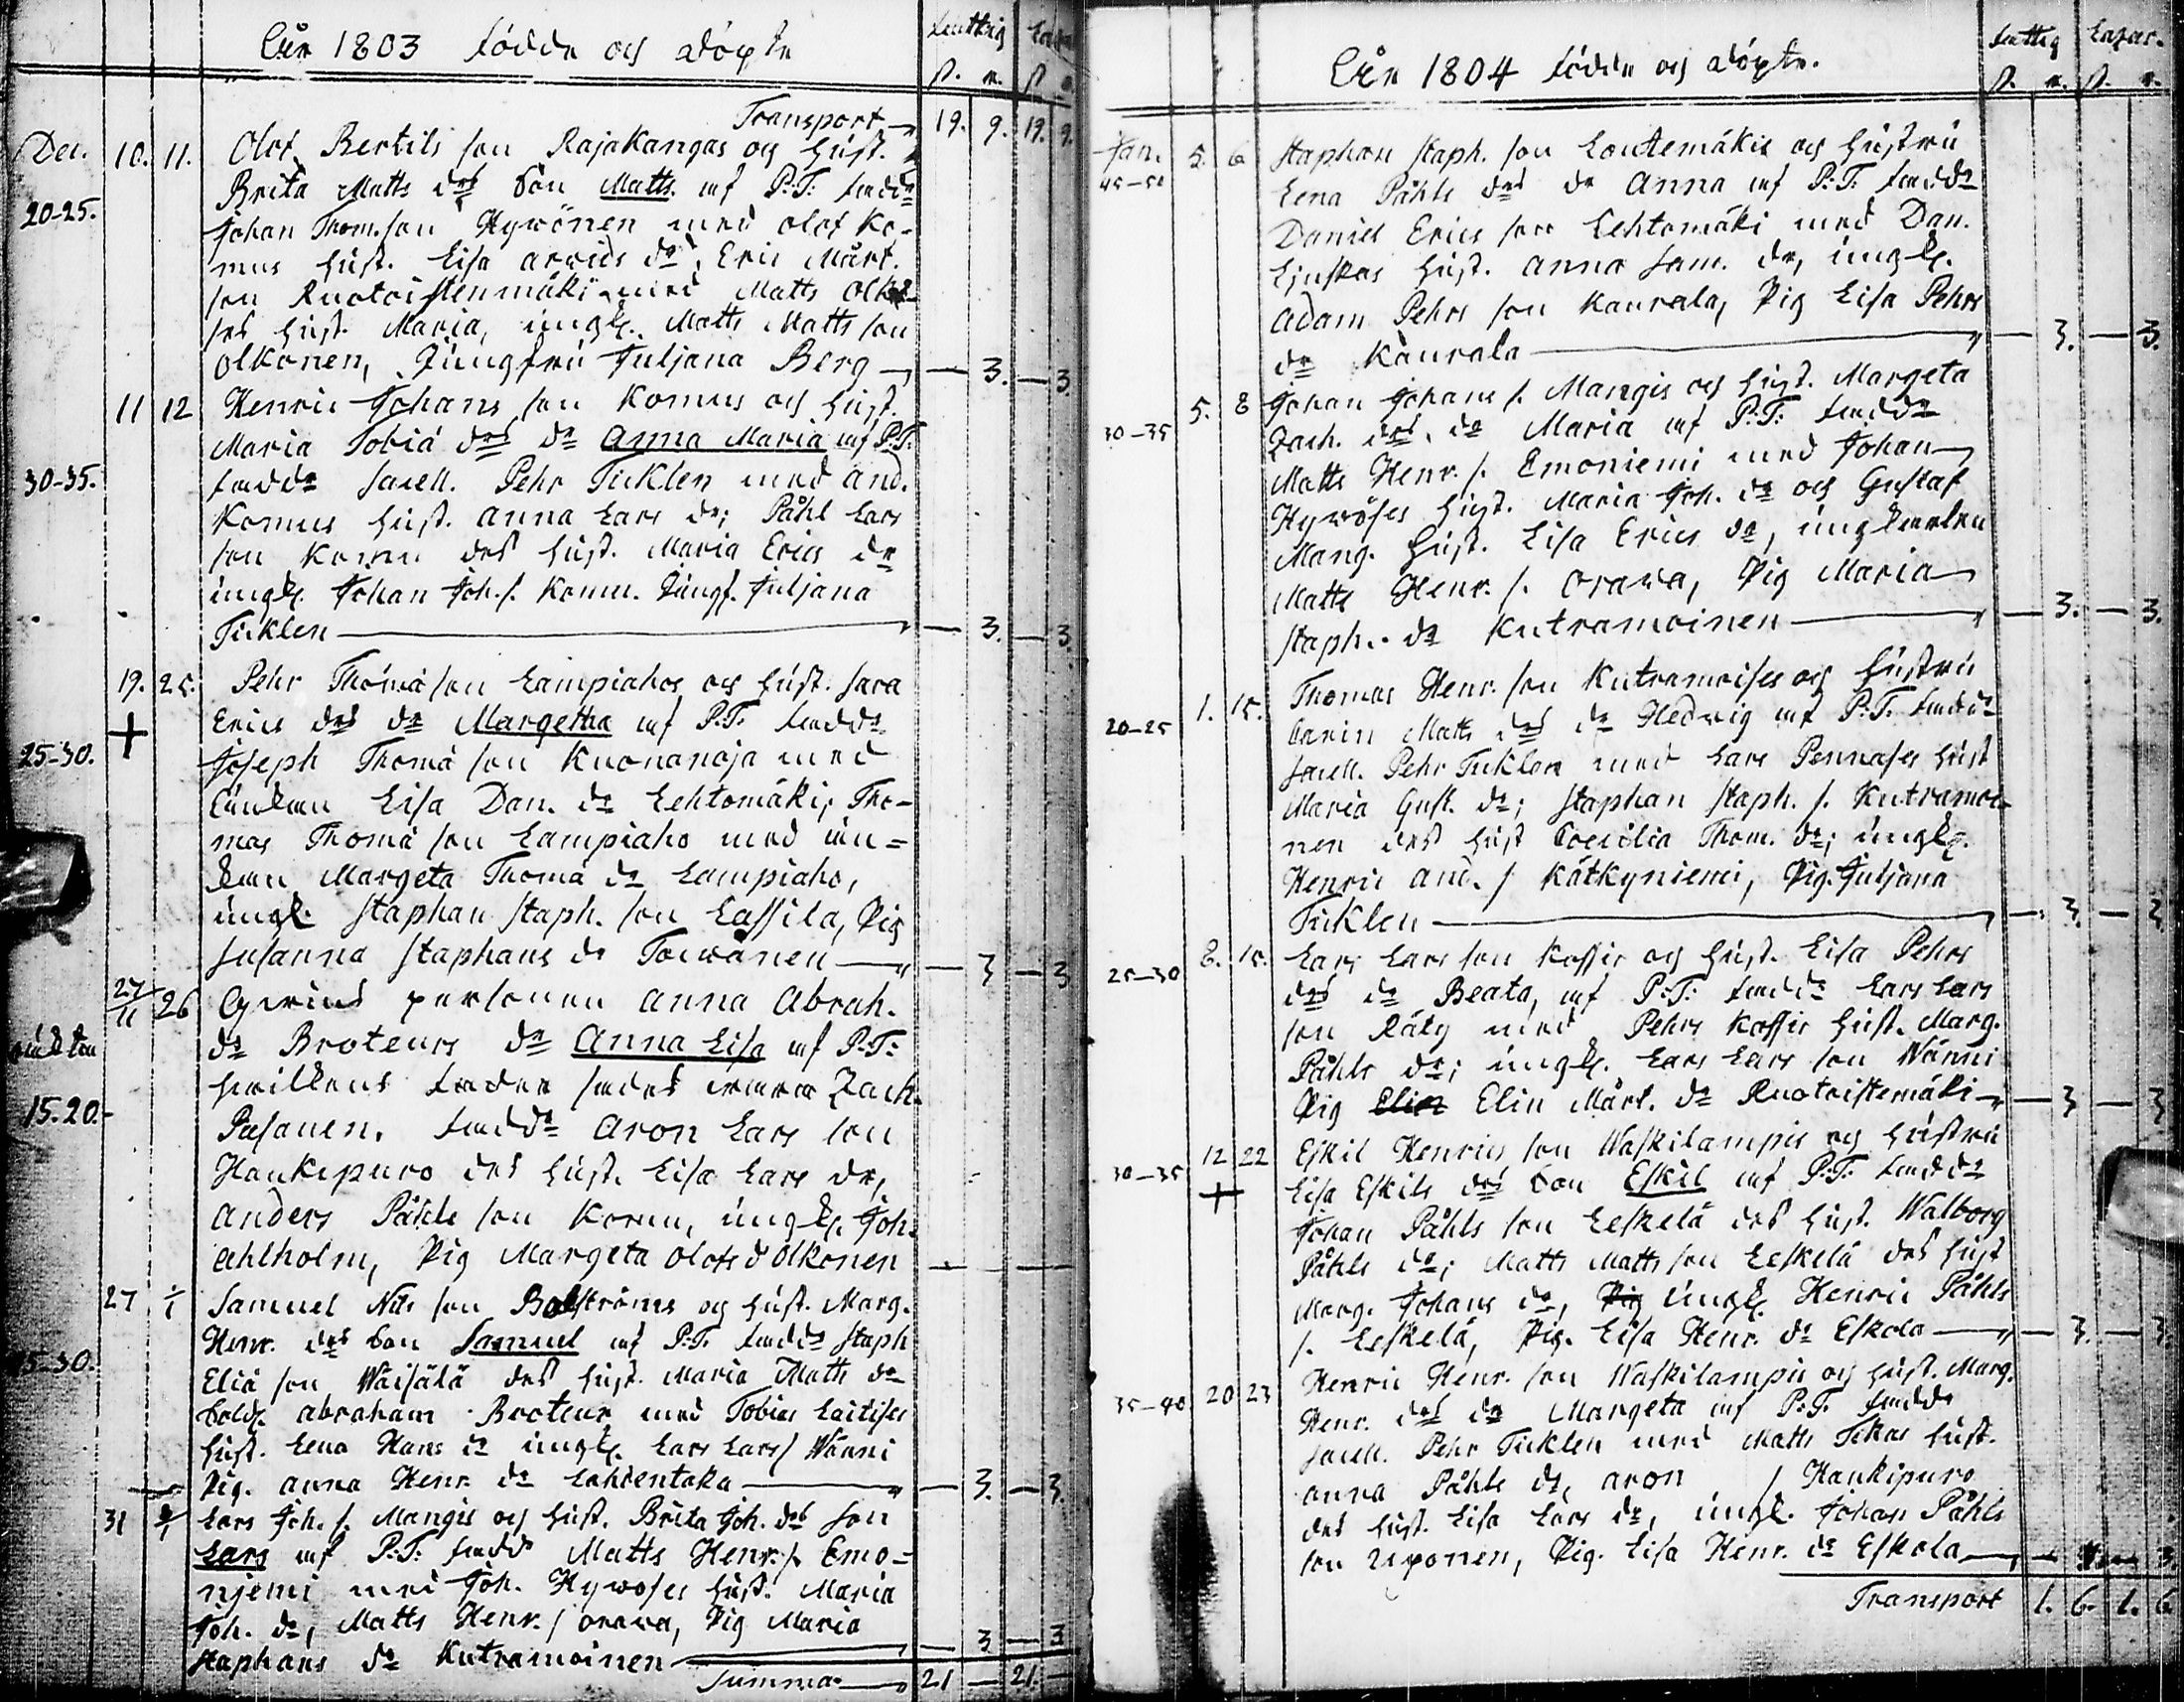 År 1803 födde och döpte
fattig Lazar.
s. r. s. r.
Transport 19. 9. 19. 9.
Dec. 10. 11. Olof Bertils son Rajakangas och hust.
Brita Matts drs Son Matts. inf P:T: fadd.
20-25. Johan Thom. son Hywönen med Olof Ko-
mus hust. Lisa arvids dr, Eric Mårt.
son Ruotoistenmäki med Matts
hust. Maria, ungk. Matts Matts son
Olkonen, Jungfru Juljana Berg — 3. — 3.
11 12 Henric Johans son Komus och hust.
Maria Tobiä drs dr Anna Maria inf P:T:
30-35. fadd. Pehr Ticklen med And.
Komus hust. Anna Lars dr; Påhl Lars
son Komu des hust. Maria Erics dr
ungk. Johan Joh. s. Komu. Jungf. Juljana
Ticklen — 3. — 3.
19. 25. Pehr Thomä son Lampiahos och hust. Sara
+ Erics drs dr Margetha inf P:T: fadd.
25-30. Joseph Thomä son Kuonanoja med
Enkan Lisa Dan. dr Lehtomäki, Tho-
mas Thomä son Lampiaho med en-
kan Margeta Thomä dr Lampiaho,
ungk. Staphan Staph. son Lassila, Pig
Susanna Staphans dr Toiwanen — 3 — 3
27/11 26 personen Anna Abrah.
oäkta dr Broteurs dr Anna Lisa inf P:T:
hvilkens fader sades vara Zach.
15.20. Pasanen. fadd. Aron Lars son
Haukipuro des hust. Lisa Lars dr,
Anders Påhls son Komu, ungk. Joh.
Ahlholm, Pig Margeta Olofs d Olkonen — —
27 1/1 Samuel Nils son Bolströms och hust. Marg.
Henr. drs Son Samuel inf P:T: fadd. Staph
25-30. Eliä son Wäisälä des hust. Maria Matts dr
Sold. Abraham Broteur med Tobias Laitises
hust. Lena Hans dr ungk. Lars Lars s Wänni
Pig. Anna Henr. dr Lahdentaka — 3. — 3.
31 Lars Joh. s. Mangis och hust. Brita Joh. drs son
Lars inf P:T: fadd Matts Henr. s. Emo-
njemi med Joh. Hywöses hust. Maria
Joh. dr, Matts Henr. s Orawa, Pig Maria
Staphans dr Kutramoinen — 3 — 3
Summa 21 — 21. —
År 1804 födde och döpte.
fattig Lazar.
s. r. s. r.
Jan. 5. 6 Staphan Staph. son Lontemäkis och hustru
45-50 Lena Påhls drs dr Anna inf P:T: fadd.
Daniel Erics son Lehtomäki med Dan.
hust. Anna Sam. dr, ungk.
Adam Pehrs son Kaurala, Pig Lisa Pehrs
dr Kaurala — 3. — 3.
5. 8 Johan Johans s. Mangis och hust. Margeta
30-35 Zach. drs. dr Maria inf P:T: fadd.
Matts Henr. s. Emoniemi med Johan
Hywöses hust. Maria Joh. dr och Gustaf
Mang. hust. Lisa Erics dr, ungkarlen
Matts Henr. s. Orawa, Pig Maria
Staph. dr Kutramoinen — 3. — 3.
1. 15. Thomas Henr. son Kutramoises och hustru
20-25 Carin Matts drs dr Hedwig inf P:T: fadd.
Pehr Ticklen med Lars Pennases hust
Maria Gust. dr; Staphan Staph. s. Kutramoi-
nen des hust Coecilia Thom. dr; ungk.
Henric And. s Kätkyniemi, Pig. Juljana
Ticklen — 3. — 3
8. 15. Lars Lars son Kossis och hust. Lisa Pehrs
25-30 drs dr Beata, inf P:T: fadd. Lars Lars
son Räty med Pehrs Kossis hust. Marg.
Påhls dr; ungk. Lars Lars son Wänni
Pig Elin Elin Mårt. dr Ruotoistemäki — 3 — 3
12 22 Eskil Henrics son Waskilampis och hustru
30-35 + Lisa Eskils drs Son Eskil inf P:T: fadd.
Johan Påhls son Leskelä des hust. Walborg
Påhls dr; Matts Matts son Leskelä des hust
Marg. Johans dr, Pig ungk. Henric Påhls
s. Leskelä, Pig. Lisa Henr. dr Eskola — 3. — 3.
20 23 Henric Henr. son Waskilampis och hust. Marg.
35-40 Henr. drs dr Margeta inf P:T: fadd.
Pehr Ticklen med Matts Tikas hust.
Anna Påhls dr, Aron s Haukipuro
des hust. Lisa Lars dr, ungk. Johan Påhls
son Uponen, Pig. Lisa Henr. dr Eskola
Transport 1. 6. 1. 6